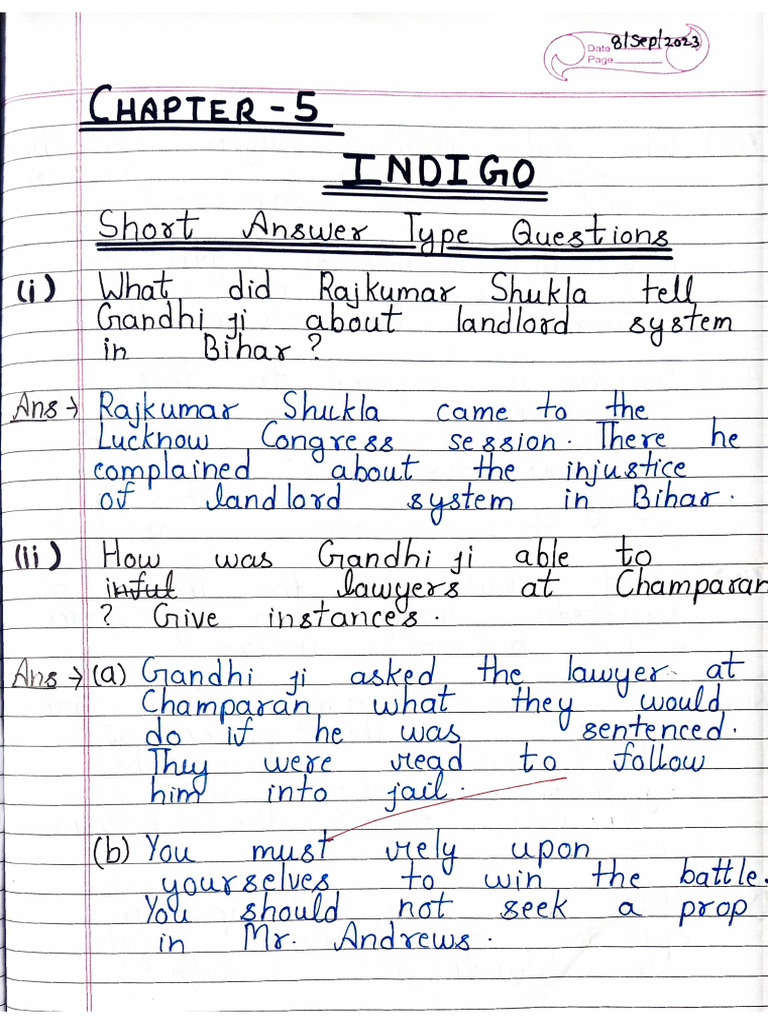 Date 8/Sep/2023
Page
CHAPTER - 5
INDIGO
Short Answer Type Questions
(i) What did Rajkumar Shukla tell
Gandhi ji about landlord system
in Bihar?
Ans → Rajkumar Shukla came to the
Lucknow Congress session. There he
complained about the injustice
of landlord system in Bihar.
(ii) How was Gandhi ji able to
lawyers at Champaran
? Give instances.
Ans → (a) Gandhi ji asked the lawyer at
Champaran what they would
do if he was sentenced.
They were read to follow
him into jail.
(b) You must rely upon
yourselves to win the battle.
You should not seek a prop
in Mr. Andrews.